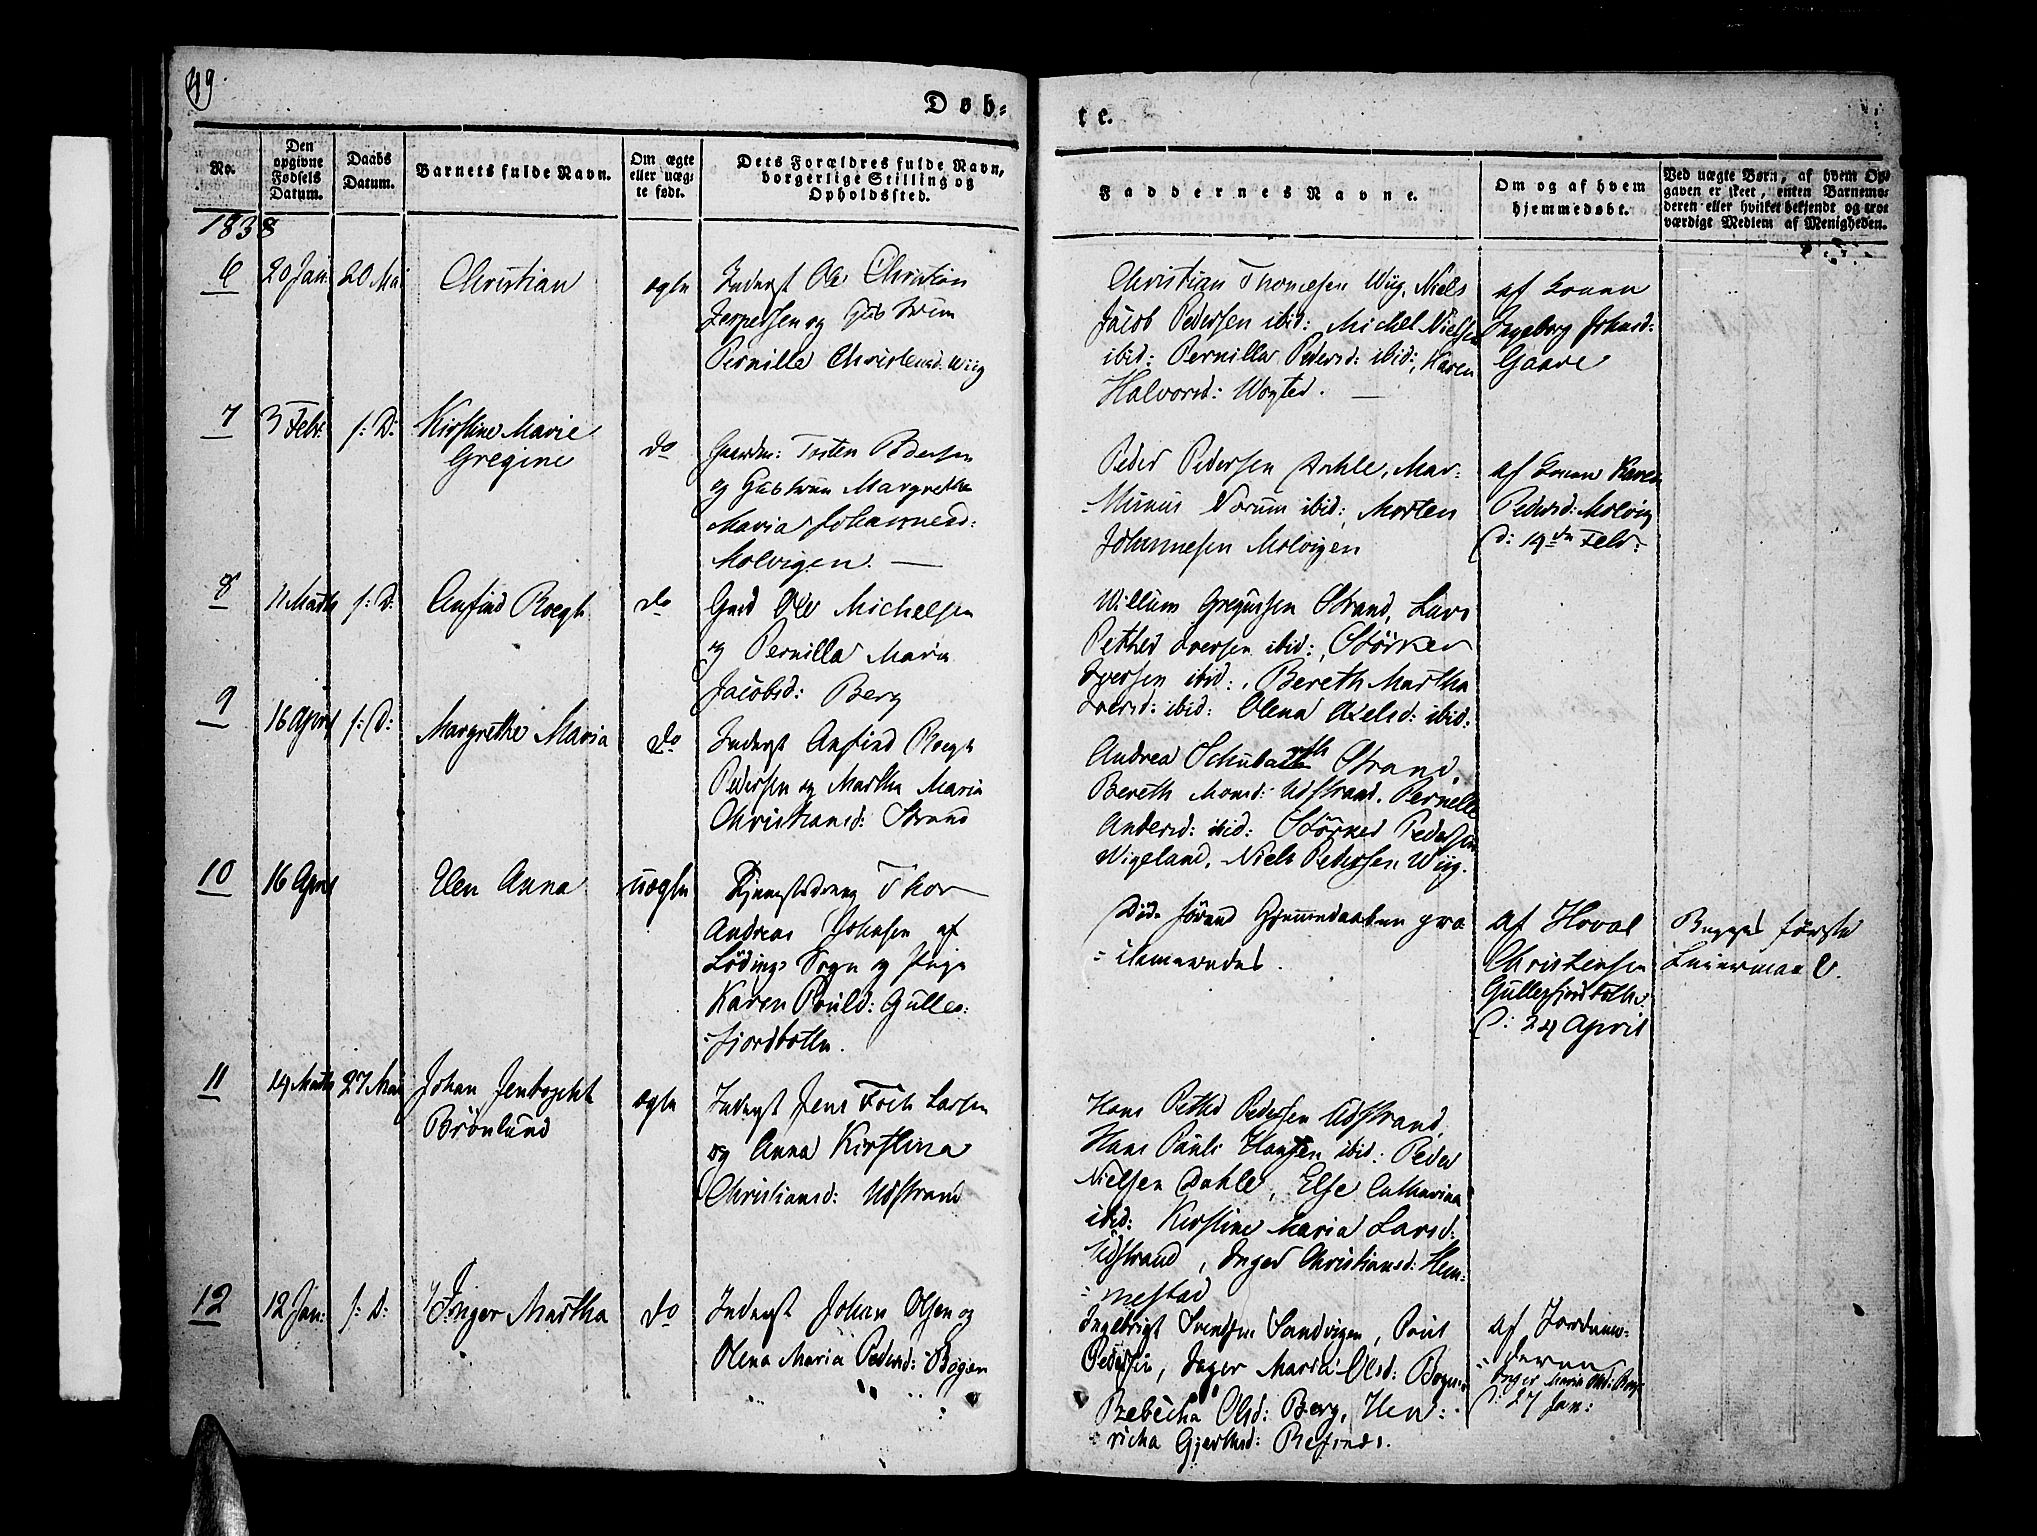 49.
Døb=
te.
No.
Den opgivne Fødsels Datum.
Daabs Datum.
Barnets fulde Navn.
Om ægte eller uæg= te født.
Dets Forældres fulde Navn, borgerlige Stilling og Opholdssted.
Faddernes Navne.
Om og af hvem hjemmedøbt.
Ved uægte Børn, af hvem Op= gaven er skeet, enten Barnemo= deren eller hvilket bekjendt og tro= værdigt Medlem af Menigheden.
1838
6
20 Jan:
20 Mai
Christian
ægte
Inderst Ole Christian
Jespersen og Hustrue
Pernille Christensd: Wiig
Christian Thomesen Wiig, Niels
Jacob Pedersen ibid: Michel Nielsen
ibid: Pernilla Pedersd: ibid:, Karen
Halvorsd: Wogted.
af Konen
Ingeborg Johnsd:
Gaare
7
3 Febr:
s: D:
Kirstine Marie
Gregine
do
Gaardm: Tosten Pedersen
og Hustrue Margrethe
Maria Johannesd:
Molvigen.
Peder Pedersen Dahle, Mar=
Morten
Johannesen Molvigen
af Konen Karen
Pedersd: Molvig
d: 19de Febr:
8
11 Marts
s: D:
Anfind Roegh
do
Grd Ole Michelsen
og Pernilla Maria
Jacobsd: Berg
Willum Gregusen Strand, Lars
Petter Iversen ibid:, Størker
Iversen ibid:, Bereth Martha
Iversd: ibid: Olena Axelsd: ibid:
9
16 April
s: D:
Margrethe Maria
do
Inderst Anfind Roegh
Pedersen og Martha Maria
Christiansd: Strand
Andrea Schubarth Strand,
Bereth Monsd: Udstrand, Pernelle
Andersd: ibid: Størker Pedersen
Wigeland, Niels Pedersen Wiig.
10
16 April
Elen Anna
uægte
Tjenestedreng Thor
Andreas Johnsen af
Lødings Sogn og Pige
Karen Pould: Gulles=
fjordbotten.
Døde førend Gjenmdaaben præ
af Hoval
Christensen
Gullesfjordbotten
d: 24 April
Begges første
Leiermaal.
11
14 Marts
27 Mai
Johan Jentoght
Brönlund
ægte
Inderst Jens Foch Larsen
og Anna Kirstina
Christiansd: Udstrand
Hans Petter Pedersen Udstrand,
Hans Pauli Hansen ibid: Peder
Nielsen Dahle, Else Catharina
ibid: Kirstine Maria Larsd:
Udstrand, Inger Christiansd: Hem=
=mestad
12
12 Jan:
s: D:
Inger Martha
do
Inderst Johan Olsen og
Olena Maria Pedersd: Bogen
Ingebrigt Svendsen Sandvigen, Poul
Pedersen, Inger Maria Olsd: Bogen
Rebecha Olsd: Berg, Hen=
richa Gjerthsd: Refsnes.
af Jordmo=
=deren
Inger Maria Olsd: Bog.
d: 27 Jan: